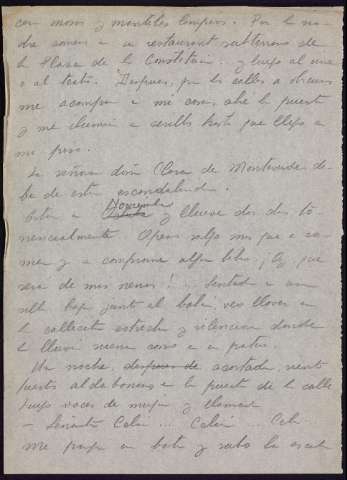 con monos y manteles limpios. Por la no-
che vamos a un restaurant subterraneo de
la Plaza de la Constitución y luego al cine
o al teatro. Despues, por las calles a obscuras
me acompaña a mi casa, abre la puerta
y me alumbra a cerillas hasta que llego a
mi piso.
La señora doña Clara de Montevideo de-
be de estar escandalizada.
Estoy en Noviembre y llueve dos dias to-
rrencialmente. Apenas salgo mas que a co-
mer y a comprarme algun libro. ¡Ay, que
sera de mis nenes! ... Sentada en una
silla baja junto al balcón veo llover en
la callecita estrecha y silenciosa donde
la lluvia suena como en un patio.
Una noche, despues de acostada, siento
fuertes aldabonazos en la puerta de la calle
luego voces de mujer y llaman
— Señorita Celia ... Celia ... Celi
Me pongo la bata y salgo a la escale